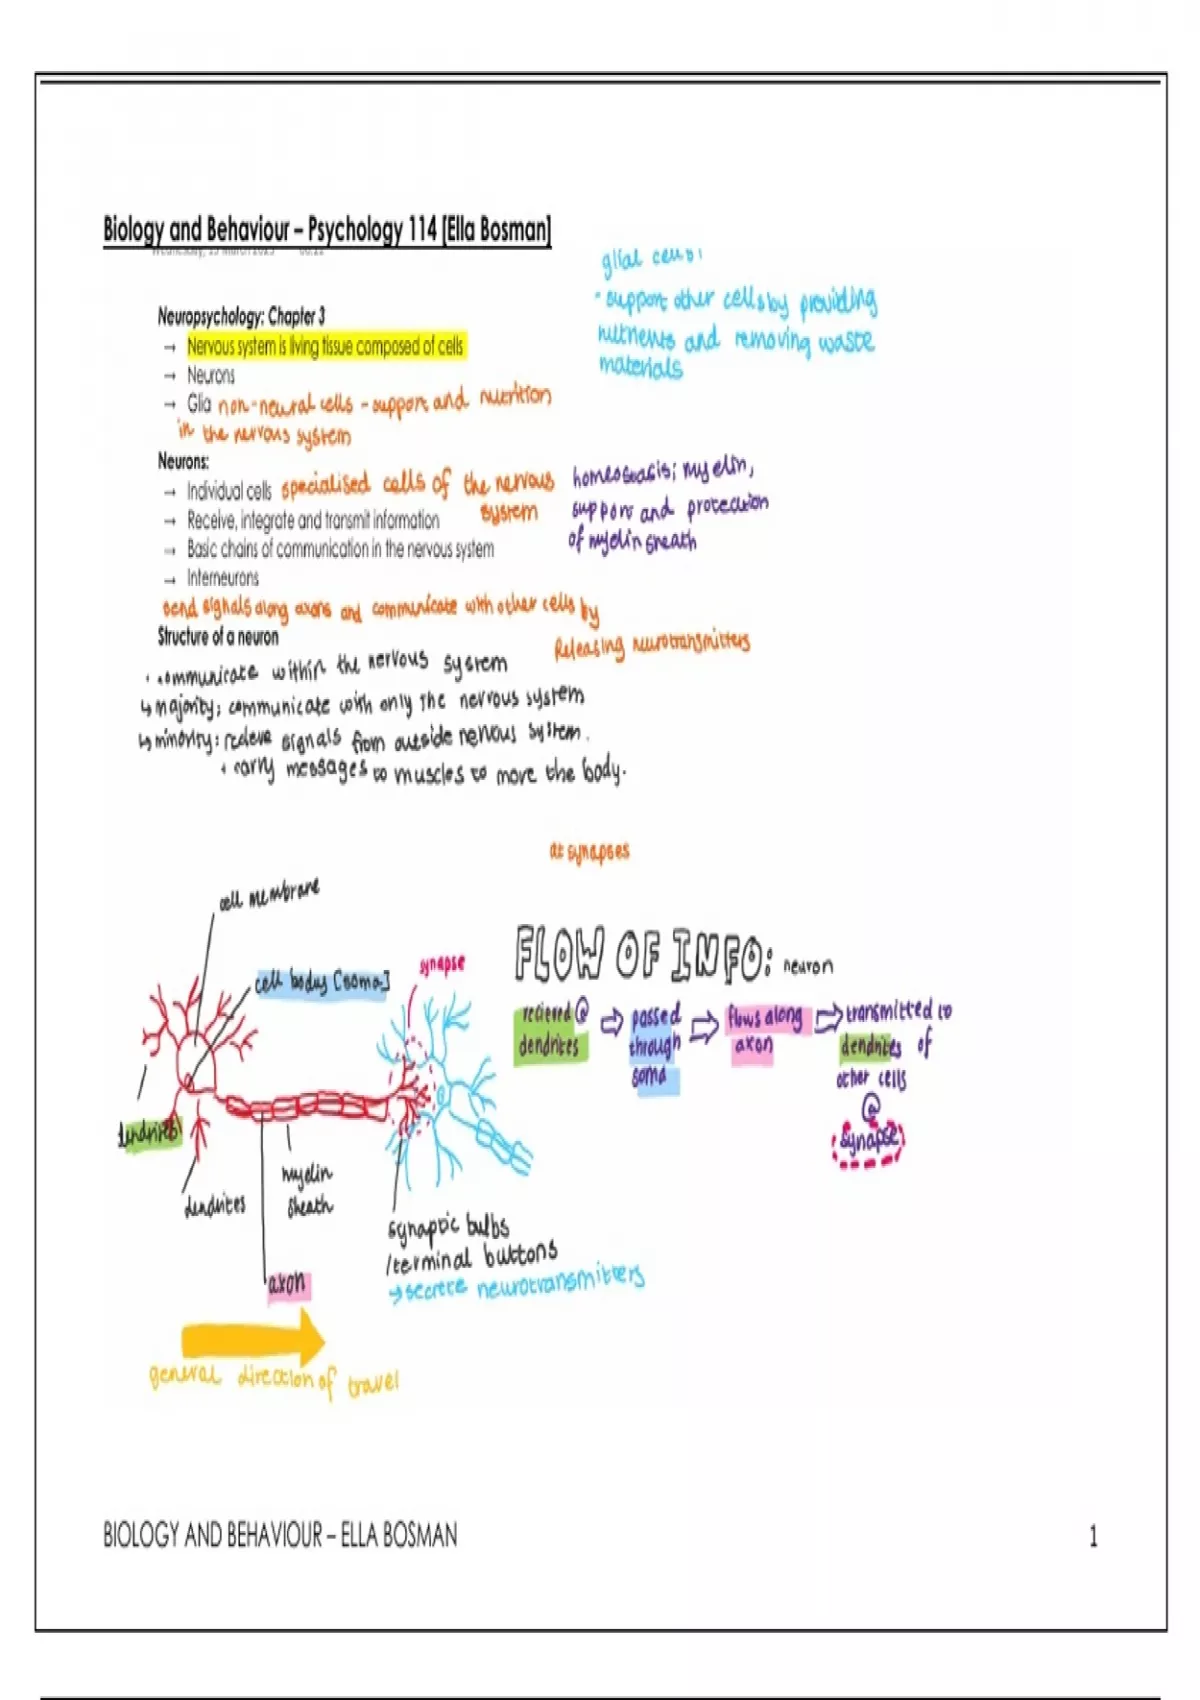 Biology and Behaviour – Psychology 114 [Ella Bosman]
glial cells:
- support other cells by providing
nutrients and removing waste
materials
Neuropsychology: Chapter 3
→ Nervous system is living tissue composed of cells
→ Neurons
→ Glia non-neural cells - support and nutrition
in the nervous system
Neurons:
→ Individual cells specialised cells of the nervous
system
→ Receive, integrate and transmit information
→ Basic chains of communication in the nervous system
→ Interneurons
homeostasis; myelin,
support and protection
of myelin sheath
send signals along axons and communicate with other cells by
Releasing neurotransmitters
Structure of a neuron
· communicate within the nervous system
↳ majority; communicate with only the nervous system
↳ minority: recieve signals from outside nervous system.
· carry messages to muscles to move the body.
at synapses
cell membrane
cell body [soma]
synapse
dendrites
dendrites
myelin
sheath
axon
synaptic bulbs
/terminal buttons
→ secrete neurotransmitters
general direction of travel
FLOW OF INFO: neuron
recieved @
dendrites
⇨ passed
through
soma
⇨ flows along
axon
⇨ transmitted to
dendrites of
other cells
@
synapse
BIOLOGY AND BEHAVIOUR – ELLA BOSMAN
1